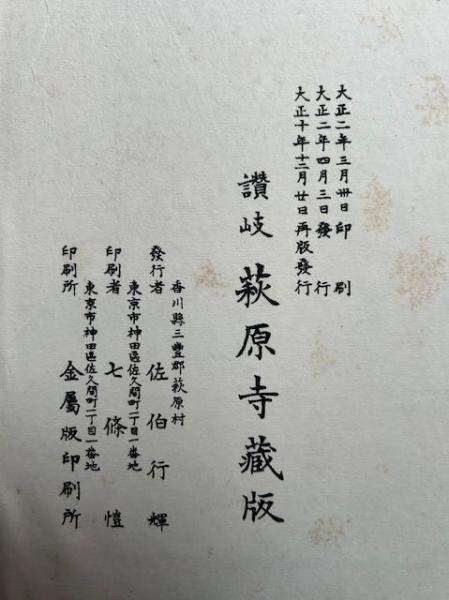 大正二年三月卅日印刷
大正二年四月三日發行
大正十年十二月廿日再版發行
讚岐 萩原寺藏版
香川縣三豐郡萩原村
發行者 佐伯行輝
東京市神田區佐久間町二丁目一番地
印刷者 七條愷
東京市神田區佐久間町二丁目一番地
印刷所 金屬版印刷所